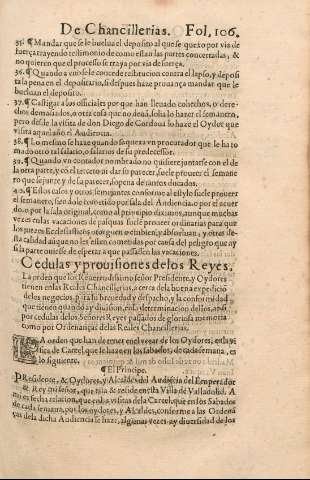 De Chancillerias. Fol, 106.
35. ¶ Mandar que se le buelua el deposito al que se quexo por via de
fuerça trayendo testimonio de como estan las partes concertadas; &
no quieren que el processo se traya por via de fuerça.
36. ¶ Quando a vno se le concede restitucion contra el lapso, y deposi
ta la pena en el depositario, si despues haze prouança mandar que le
bueluan el deposito.
37. ¶ Castigar a los oficiales por que han lleuado cohechos, o dere-
chos demasiados, a otra cosa que no deuã, solia lo hazer el semanero,
pero desde la visita de don Diego de Cordoua lo haze el Oydor que
visita aquel año el Audiencia.
38. ¶ Lo mesmo se haze quando se quexa vn procurador que le ha to
mado otro tal salario, o salarios de su predecessor.
39. ¶ Quando vn contador nombrado no quisiere juntarse con el de
la otra parte, y cõ el tercero ni dar su parecer, suele proueer el semane
ro que se junte y de su parecer, so pena de tantos ducados.
40. ¶ Estos casos y otros semejantes conforme al estylo suele proueer
el semanero, siendole cometido por sala del Audiencia, o por el acuer
do, o por la sala original, como al principio diximos, aunque muchas
vezes en las vacaciones de pasquas suele proueer ordinarias para que
los juezes Ecclesiasticos otorguen o embien, y absueluan; y otras de
sta calidad aunque no les estem cometidas por causa del peligro que ay
si la parte ouiesse de esperar a que passassen las vacaciones.
Cedulas y prouisiones de los Reyes.
La orden que los Reyes nuestros señores, el señor Presidente, y Oydores
tienen en las Reales Chancillerias, acerca de la buena expedicio
de los negocios, para su breuedad y despacho, y la conformidad
que tienen quando ay diuision, en la determinacion de lites, assi
por cedulas de los Señores Reyes passados de gloriosa memoria
como por Ordenanças de las Reales Chancillerias.
LA orden que han de tener en el veer de los Oydores, en la vi
sita de Carcel, que se hazen los sabados, de cada semana, es
lo siguiente.
¶ El Principe.
PResidente, & Oydores, y Alcaldes del Audiẽcia del Emperador
& Rey mi señor, que esta & reside en esta Villa de Valladolid. A
mi es fecha relacion, que en las visitas de la Carcel, que en los Sabados
de cada semana, por los oydores, y Alcaldes, conforme a las Ordenã
ças de la dicha Audiencia se haze, algunas vezes ay diuersidad de los